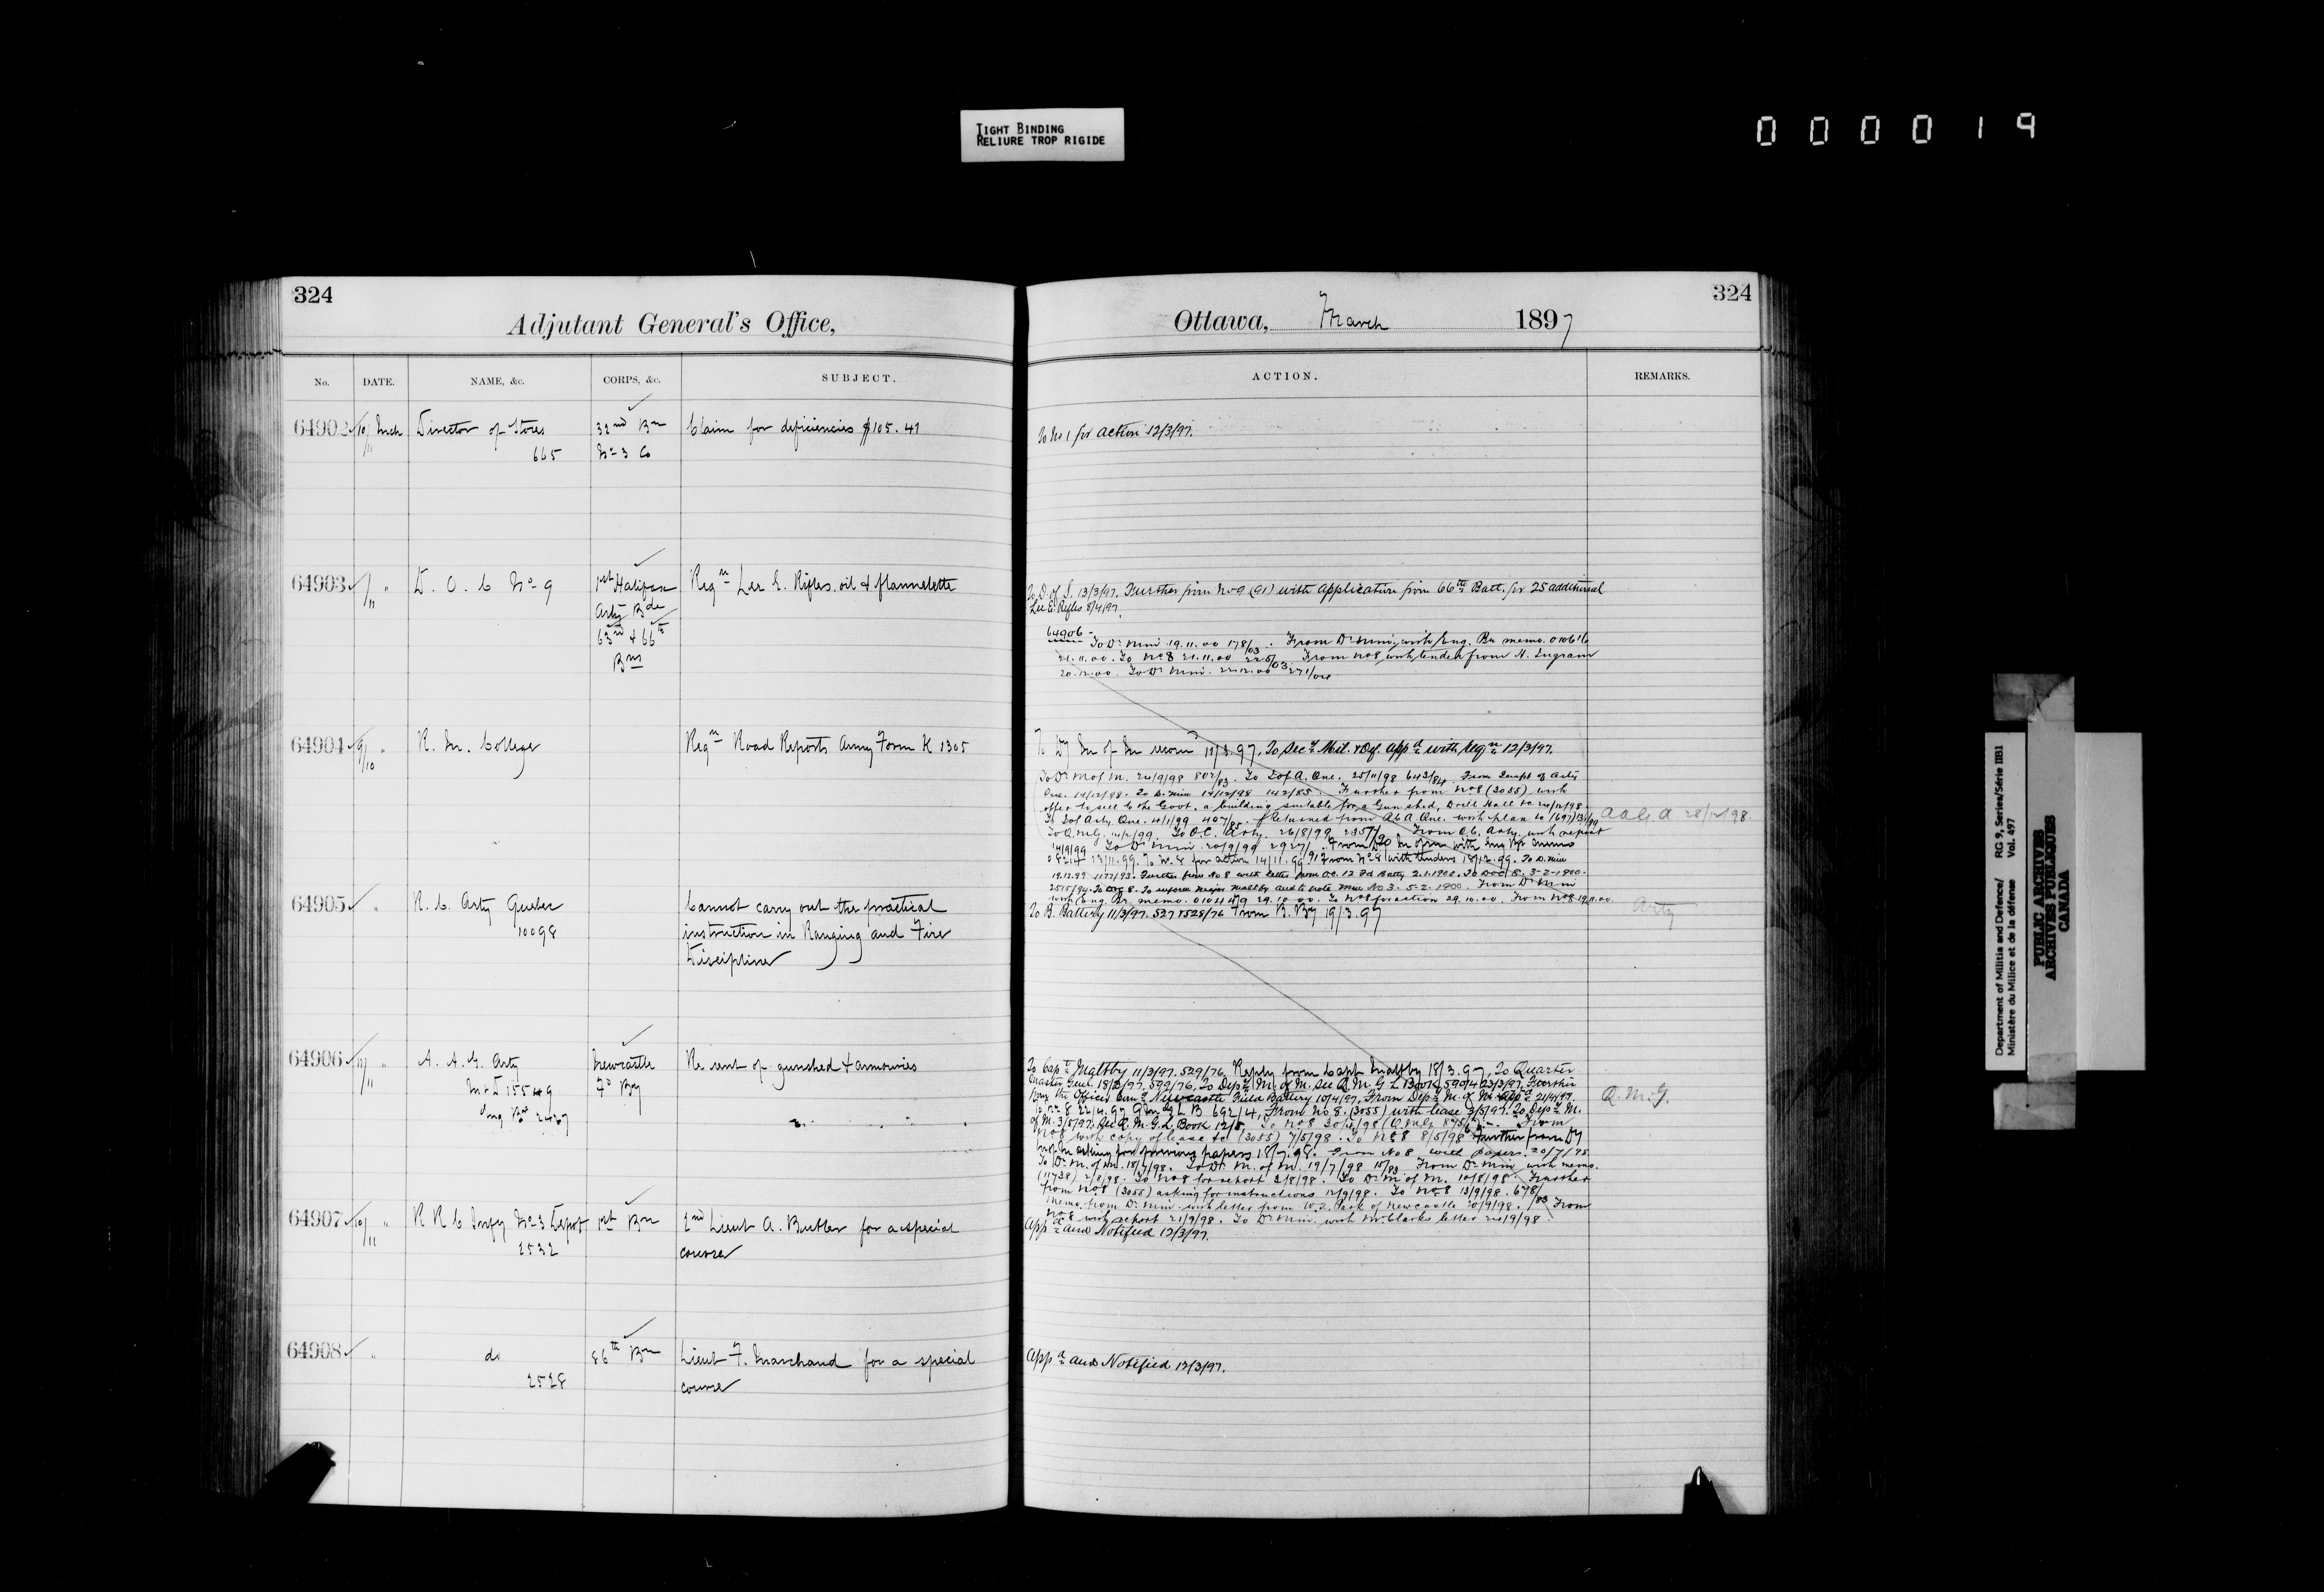 TIGHT BINDING
RELIURE TROP RIGIDE
000019
324
Adjutant General's Office,
No. DATE. NAME, &c. CORPS, &c. SUBJECT.
64902 10/11 Mch Director of Stores 32nd Bn Claim for deficiencies $105.41
665 No 3 Co
64903 /11 " D. O. C No 9 1st Halifax Reqn Lee E. Rifles. oil & flannelette
Arty Bde
63rd & 66th
Bns
64904 9/10 " R. M. College Reqn Road Reports Army Form K 1305
64905 " R. C. Arty Quebec Cannot carry out the practical
10098 instruction in Ranging and Fire
Discipline
64906 /11 " A. A. G. Arty Newcastle Re rent of gunshed & armouries
M & D 15549 Fd By
Eng Br 2427
64907 10/11 " R R C Infy No 3 Depot 1st Bn 2nd Lieut A. Butler for a special
2532 course
64908 " do 86th Bn Lieut F. Marchand for a special
2528 course
324
Ottawa, March 1897
ACTION. REMARKS.
To No 1 for action 12/3/97.
To D. of S. 13/3/97. Further from No 9 (91) with application from 66th Batt. for 25 additional
Lee E. Rifles 8/4/97.
64906 -
To Dr Min 19.11.00 178/03. From Dr Min, with Eng. Br memo.
21.11.00. To No 8 21.11.00 From No 8, with tender from H. Ingram
20.12.00. To Dr Min. 22.12.00 271/04
To Dy M of M recomd 11/3.97, To Secy Mil. & Def. appd with reqn 12/3/97.
To Dr M of M. 24/9/98 802/83. To I of A. Que. 25/11/98 643/84. From Inspt of Arty
Que. 14/12/98. To D. Min 14/12/98 142/85. Further from No 8 (3055) with
offer to sell to the Govt. a building suitable for a Gun shed, Drill Hall &c 24/12/98.
To I of Arty. Que. 4/1/99 407/85. Returned from A of A Que. with plan &c (697) AAG. A 28/12/98.
To Q.M.G. To O.C. Arty. 26/8/99 From O.C. Arty. with report
14/9/99 To Dr Min 20/9/99 From D M of M with Eng Br memo
13/11.99. To No 8 for action 14/11.99 From No 8 with tenders 18/12.99. To D. Min
19.12.99 Further from No 8 with letter from O.C. 12 Fd Batty 2.1.1900. To DOC 8. 3-2-1900.
To DOC 8. To inform Major Maltby and to note Min No 3. 5-2-1900. From Dr Min
with Eng. Br. memo. 29.10.00. To No 8 for action 29.10.00. From No 8 19.11.00.
To B. Battery 11/3/97. 527 & 528/76 From B. By 19/3.97 Arty
To Capt Maltby 11/3/97. 529/76. Reply from Capt Maltby 18/3.97, To Quarter
Master Genl. 18/3/97. 592/76, To Depy M. of M. See Q. M. G. L. Book, 590/4 23/3/97. Further
from the Officer Comg Newcastle Field Battery 10/4/97. From Depy M. of M. appd 21/4/97. Q. M. G.
To No 8 22/4.97 Q M G L B. 692/4, From No 8. (3055) with lease 3/5/97. To Depy M.
of M. 3/5/97. See Q. M. G. L. Book 12/5, To No 8 From
No 8 with copy of lease &c (3055) 7/5/98. To No 8 8/5/98 Further from Dy
M of M asking for previous papers 18.7.98. From No 8 with papers. 20/7/98
To Dr M. of M. 18/7/98. To Dr M. of M. 19/7/98 From Dr Min with memo.
(11738) 2/8/98. To No 8 for report 3/8/98. To Dr M of M. 10/8/98. Further
from No 8 (3055) asking for instructions 12/9/98. To No 8 13/9/98. 678/83 From
Memo. from Dr Min with letter from of Newcastle 20/9/98.
No 8 with report 21/9/98. To Dr Min. with Mr. Clarks letter 24/9/98.
Appd and Notified 12/3/97.
Appd and Notified 12/3/97.
Department of Militia and Defence/ RG 9, Series/Série IIB1
Ministère du Milice et de la défense Vol. 497
PUBLIC ARCHIVES
ARCHIVES PUBLIQUES
CANADA